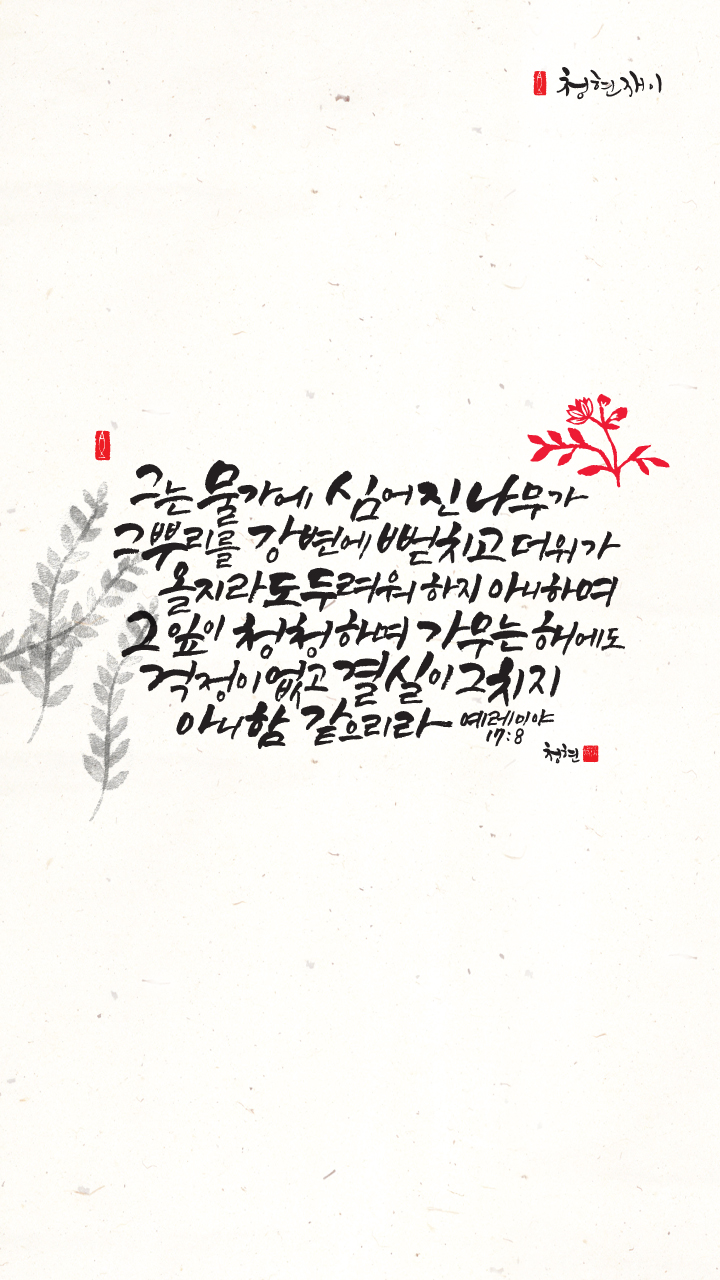 청현재이
그는 물가에 심어진 나무가
그 뿌리를 강변에 뻗치고 더위가
올지라도 두려워 하지 아니하며
그 잎이 청청하며 가무는 해에도
걱정이 없고 결실이 그치지
아니함 같으리라 예레미야
17:8
청현